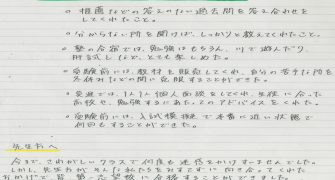 ・推薦などの答えのない過去問を答え合わせを
してくれたこと。
・分からない所を聞けば、しっかりと教えてくれたこと。
・塾の合宿では、勉強はもちろん、川で遊んだり、
肝試しなど、とても楽しめた。
・受験前には、教材を販売してくれ、自分の苦手な所を
冬休みなどの間に克服することができた。
・面談では、1人1人個人面談をしてくれ、生徒に合った
高校や、勉強するにあたってのアドバイスをくれた。
・受験前には、入試模擬で本番に近い状態で
何回もすることができた。
先生方へ
今まで、さわがしいクラスで何度も迷惑かけてすみませんでした。
しかし、先生方がそんな私たちを見すてずに向き合ってくれた
おかげで、皆、第一志望校に合格することができました。